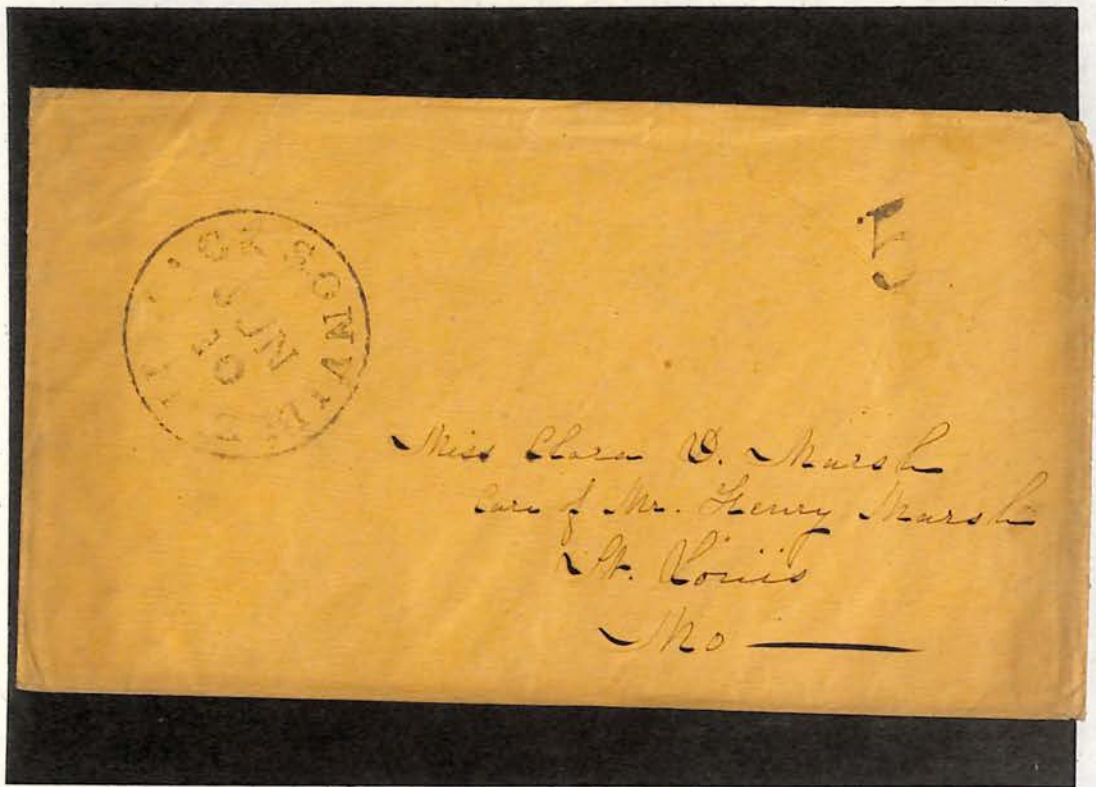 JACKSONVILLE Il
JUN
5
Miss Clara D. Marsh
Care of Mr. Henry Marsh
St. Louis
Mo